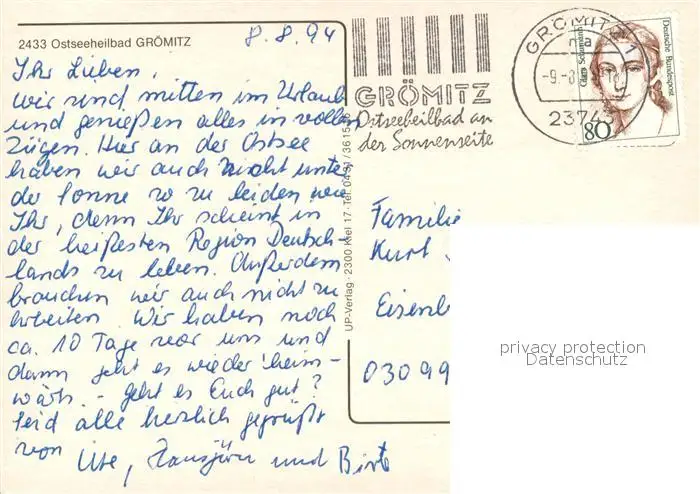 2433 Ostseeheilbad GRÖMITZ
8.8.94
Ihr Lieben,
wir sind mitten im Urlaub
und genießen alles in vollen
Zügen. Hier an der Ostsee
haben wir auch nicht unter
der Sonne so zu leiden wie
Ihr, denn Ihr scheint in
der heißesten Region Deutsch-
lands zu leben. Außerdem
brauchen wir auch nicht zu
arbeiten. Wir haben noch
ca. 10 Tage vor uns und
dann geht es wieder heim-
wärts. - geht es Euch gut?
Seid alle herzlich gegrüßt
von Ute, Hansjörn und Birte
UP-Verlag · 2300 Kiel 17 · Tel. 0431/3615
GRÖMITZ
Ostseeheilbad an
der Sonnenseite
GRÖMITZ 1
na
-9.-8.
23743
Clara Schumann
Deutsche Bundespost
80
Familie
Kurt
Eisenb
03099
privacy protection
Datenschutz